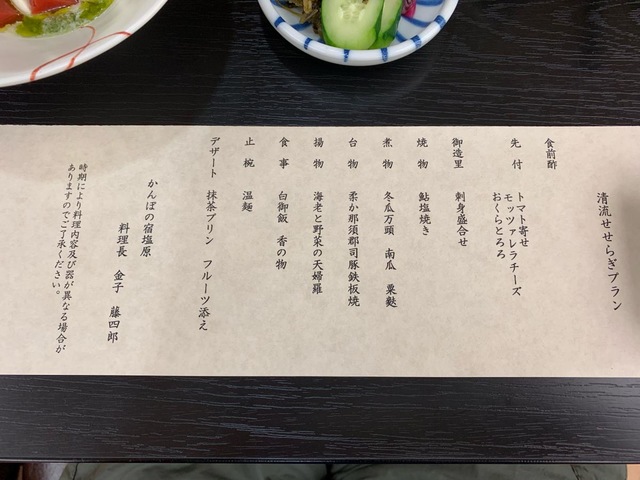 清流せせらぎプラン
食前酢
先付 トマト寄せ
モッツァレラチーズ
おくらとろろ
御造里 刺身盛合せ
焼物 鮎塩焼き
煮物 冬瓜万頭 南瓜 粟麩
台物 柔か那須郡司豚鉄板焼
揚物 海老と野菜の天婦羅
食事 白御飯 香の物
止椀 温麺
デザート 抹茶プリン フルーツ添え
かんぽの宿塩原
料理長 金子 藤四郎
時期により料理内容及び器が異なる場合が
ありますのでご了承ください。